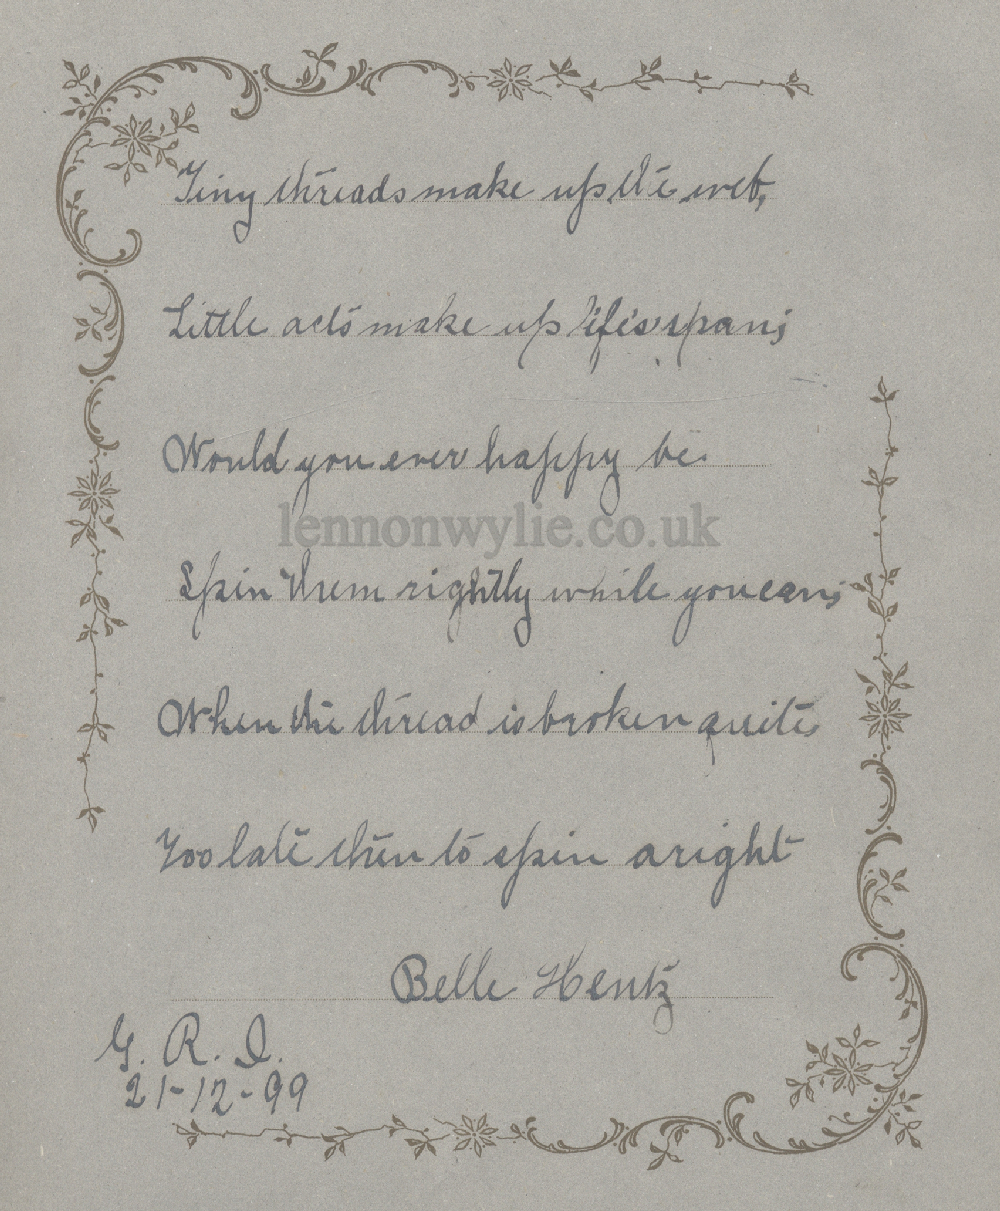 Tiny threads make up the web,
Little acts make up life's span;
Would you ever happy be
lennonwylie.co.uk
Spin them rightly while you can;
When the thread is broken quite,
Too late then to spin aright
Belle Hentz
G. R. I.
21-12-99